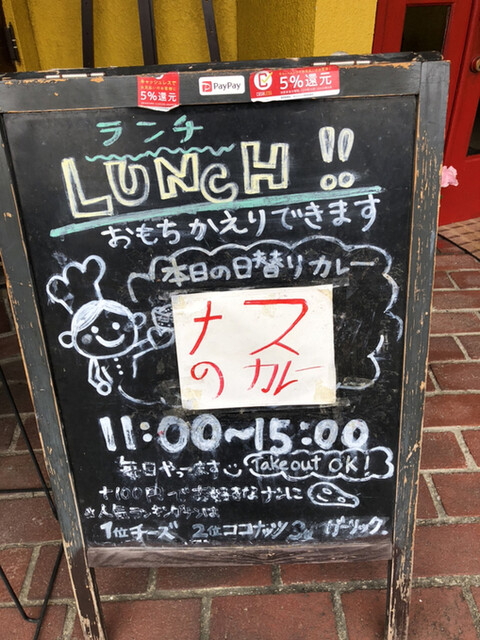 5%還元
PayPay
5%還元
ランチ
LUNCH!!
おもちかえりできます
本日の日替りカレー
ナスの
カレー
11:00〜15:00
毎日やってます
Takeout OK!
+100円で お好きなナンに
人気ランキングは
1位チーズ 2位ココナッツ 3位ガーリック